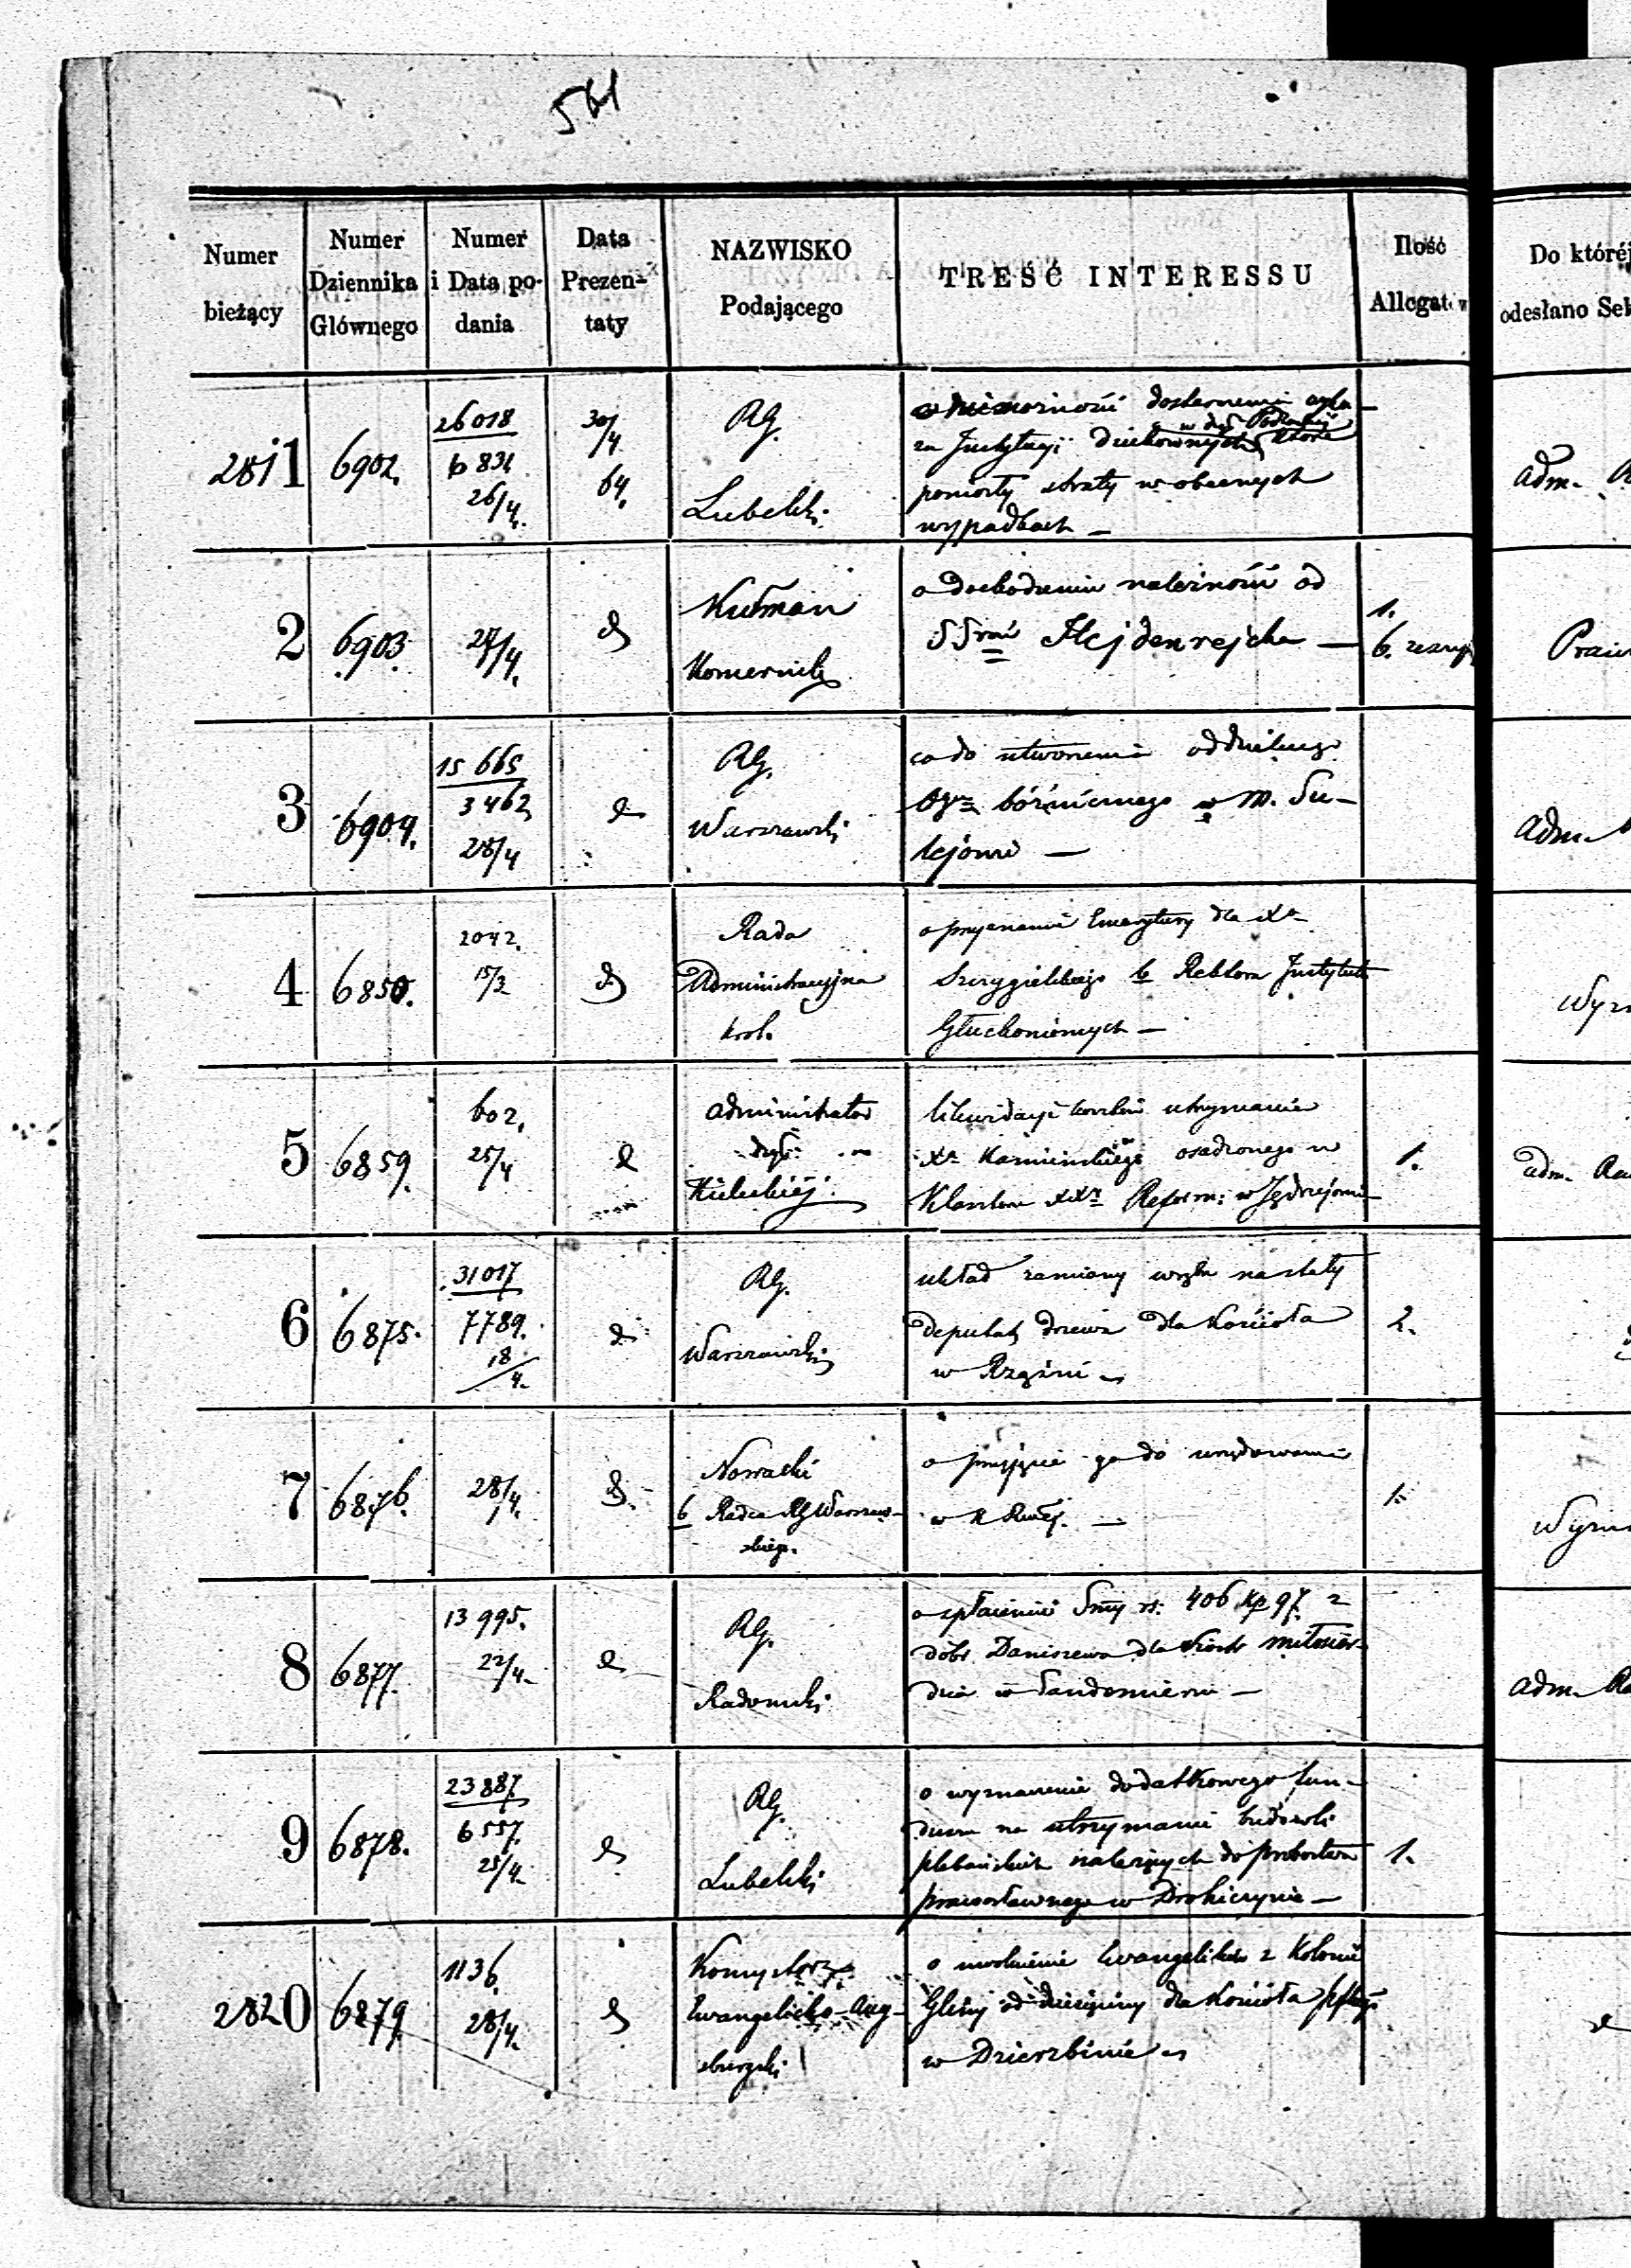 561
Numer bieżący
Numer Dziennika Głównego
Numer i Data podania
Data Prezentaty
NAZWISKO Podającego
TREŚĆ INTERESSU
Ilość Allegatów
Do któréj
odesłano Sek
2811
6902.
26018
6834
26/4.
30/4
64.
RG.
Lubelski
w dyec. Podlaskiej
które
poniosły straty w obecnych
wypadkach —
adm.
2
6903.
27/4.
d
Kulman
Komornik
o dochodzenie należności od
SSrów Hejdenrejcha —
1.
6.
Praw
3
6904.
15 665
3462
28/4
d
RG.
Warszawski
co do utworzenia oddzielnego
Ogu bóżniczego w M. Su-
lejowie —
adm.
4
6850.
2042.
15/3
d
Rada
Administracyjna
Król.
o przyznanie Emerytury dla Xa
Szczygielskiego b Rektora Instytutu
Głuchoniemych —
Wyzn
5
6859.
602.
25/4
d
Administrator
dyec.
Kieleckiéj
likwidacje kosztów utrzymania
Xa Kamińskiego osadzonego w
Klasztorze XXy Reform: w Jędrzejowie
1.
adm. Ra
6
6875.
31017
7789.
18/4.
d
RG.
Warszawski
układ zamiany wrębu na stały
deputat drzewa dla Kościoła
w Rzgowie
2.
7
6876.
28/4.
d.
Nowacki
b Radca RG Warszaw-
skiego.
o przyjęcie go do urzędowania
w K Rząd. —
1.
Wyzn
8
6877.
13 995.
22/4.
d
RG.
Radomski
o spłacenie Smy rs: 406 kp 97. z
dóbr Daniszewa dla Sióstr miłosier-
dzia w Sandomierzu —
adm. Ra
9
6878.
23887.
6557.
25/4.
d
RG.
Lubelski
o wyznaczenie dodatkowego fun-
duszu na utrzymanie budowli
plebańskich należących do probostwa
prawosławnego w Drohiczynie —
1.
2820
6879.
1136.
28/4.
d
Konsystorz
Ewangelicko-Aug-
sburgski
o uwolnienie Ewangelików z Kolonii
Gliny od dziesięciny dla Kościoła
w Dzierzbinie
d